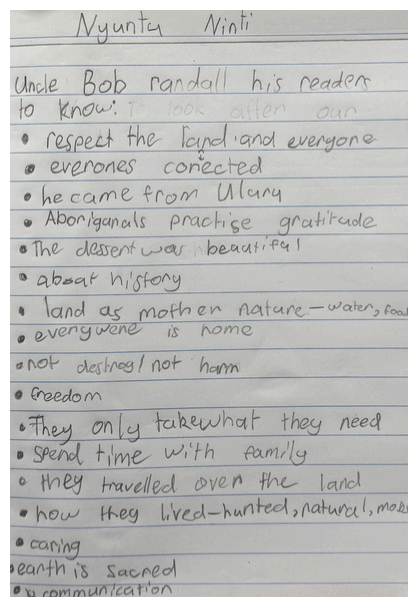 Nyuntu Ninti
Uncle Bob randall his readers
to know: To look after our
• respect the land and everyone
• everones conected
• he came from Uluru
• Aboriganals practise gratitude
• The dessert was beautiful
• about history
• land as mother nature - water, food
• everywere is home
• not destroy / not harm
• freedom
• They only take what they need
• spend time with family
• they travelled over the land
• how they lived - hunted, natural,
• caring
• earth is sacred
• communication